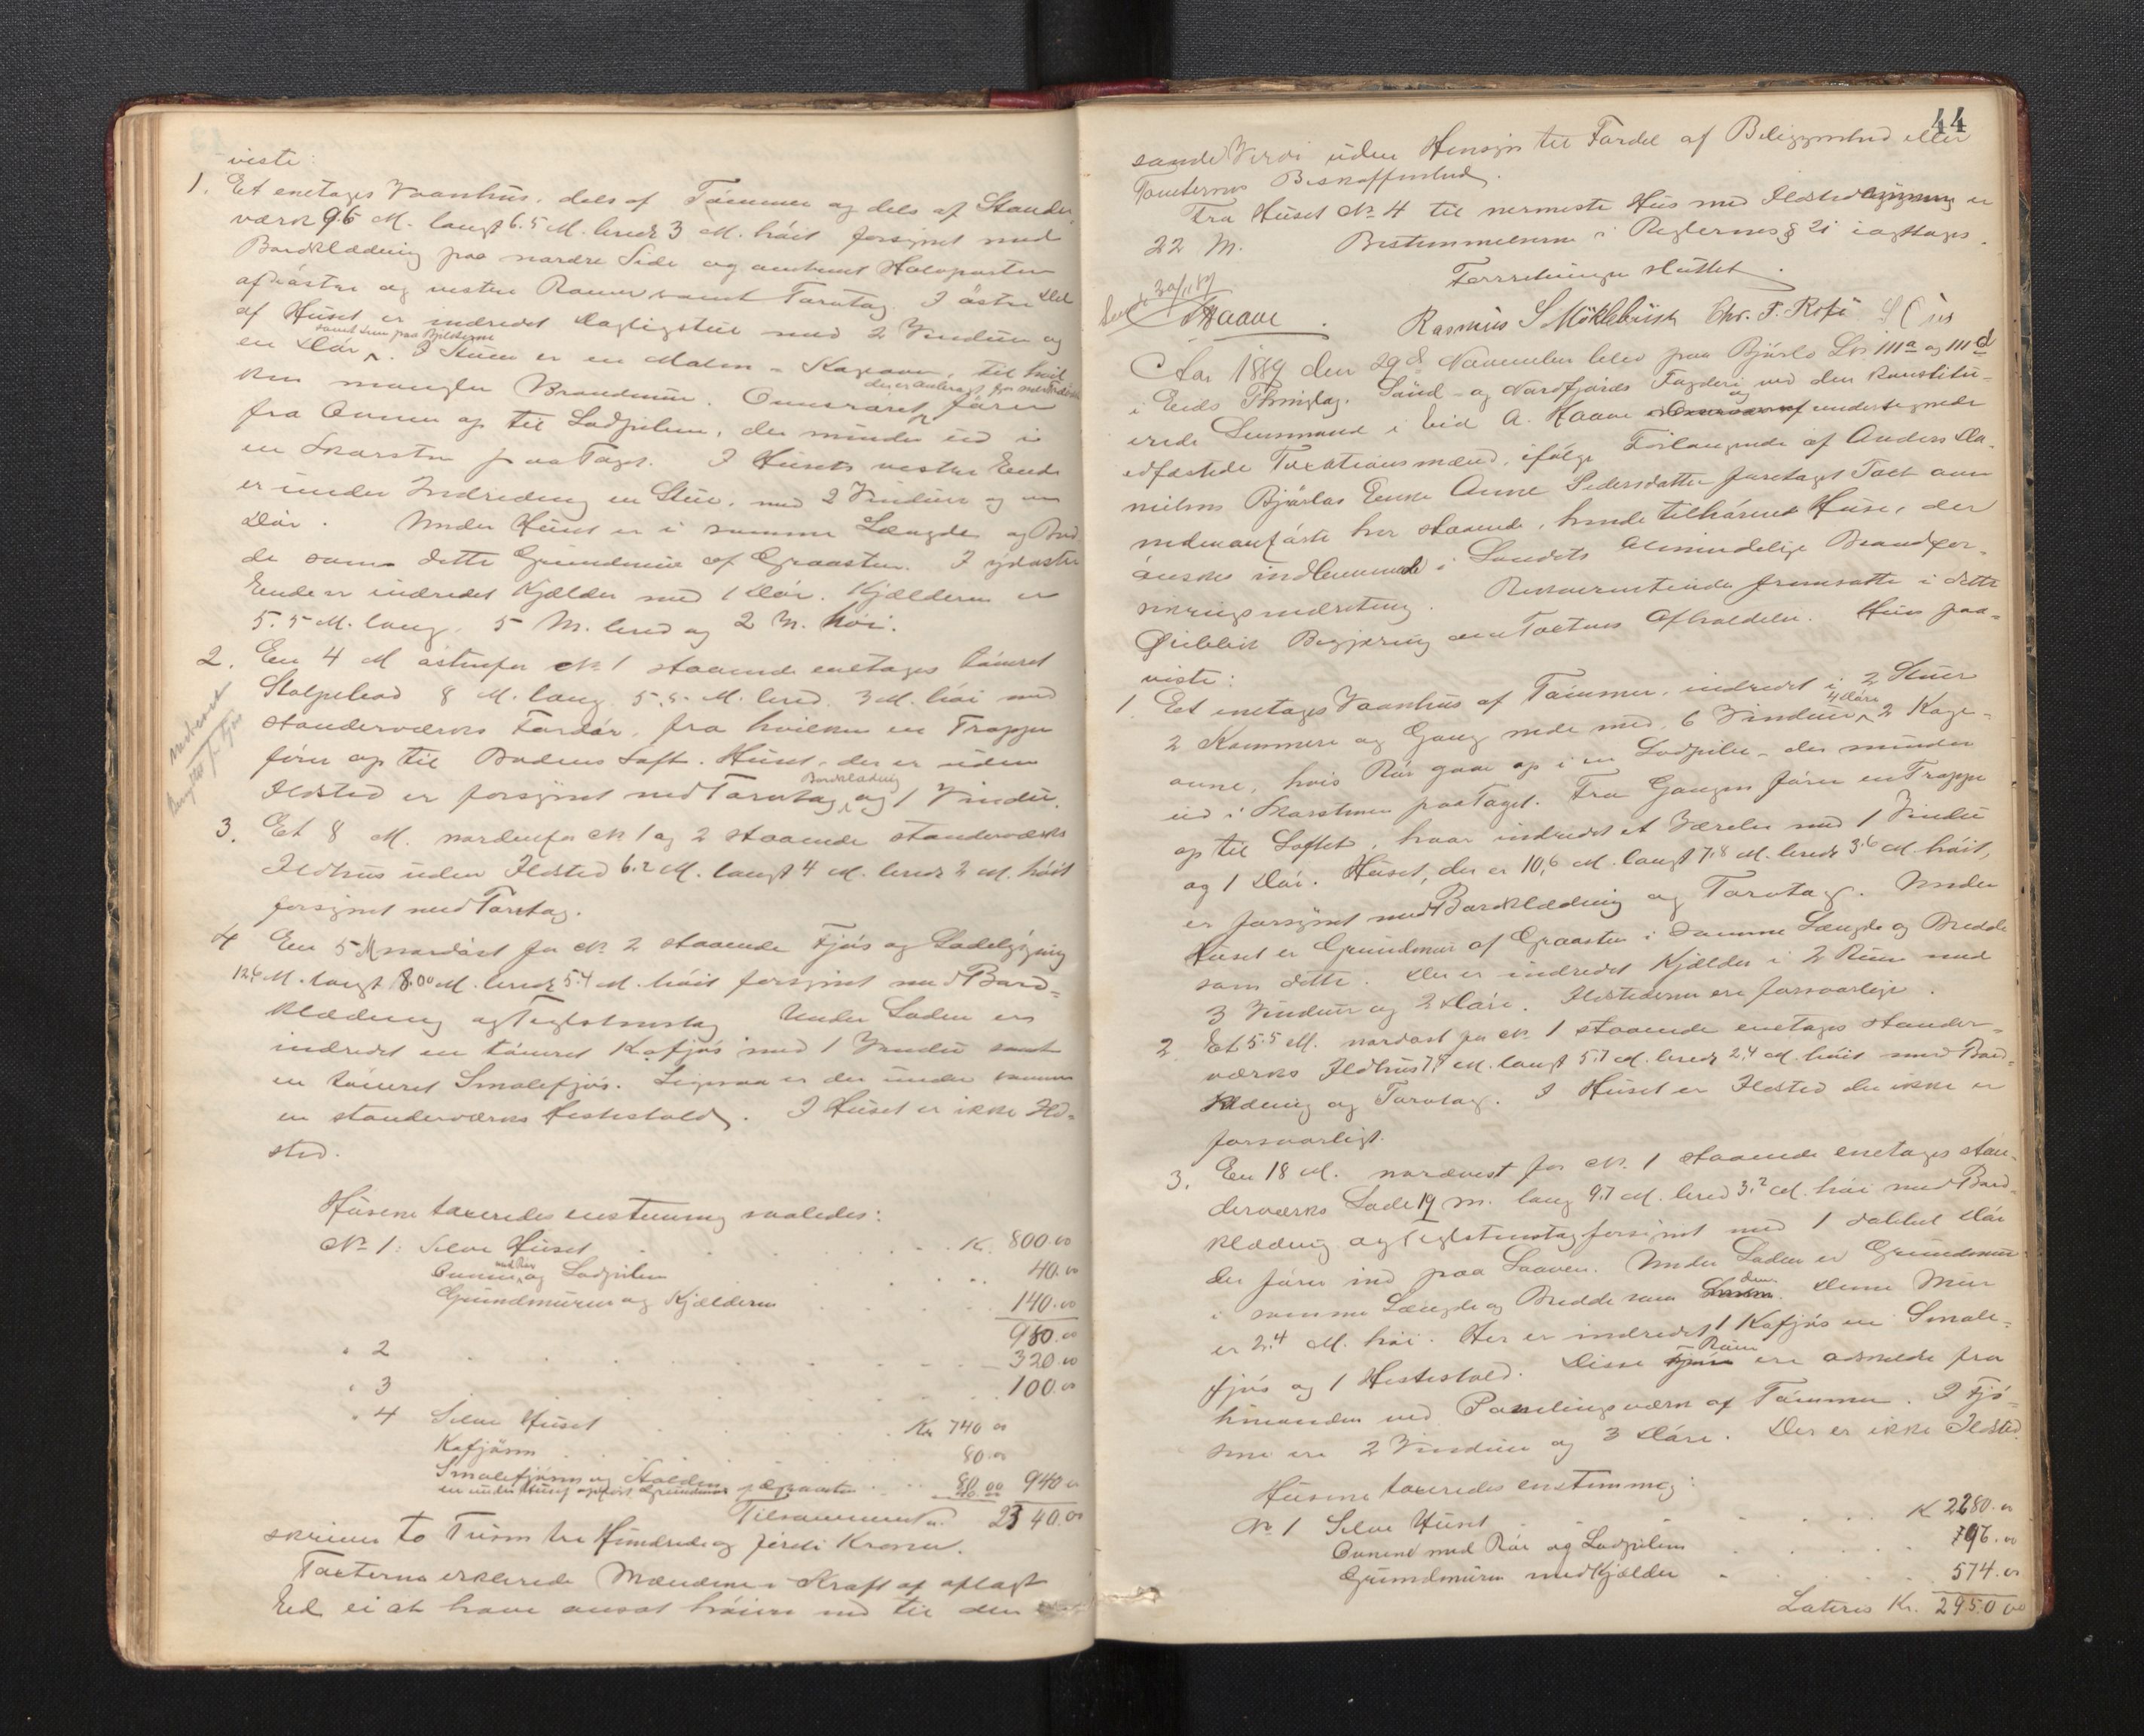 viste:
1. Et enetages Vaanhus, dels af Tømmer og dels af Stander-
værk 9.6 M. langt 6.5 M. bredt 3 M. høit forsynet med
Bordklædning paa nordre Side og omtrent Halvparten
af østre og vestre Rønner samt Torvtag. I østre Del
af Huset er indredet Dagligstue med 2 Vinduer og
en Dør. I Stuen er en Malm-Kagovn, til hvil
ken mangler Brandmur. Ovnsrøret fører
fra Ovnen op til Lodpiben, der munder ud i
en Skorsten paa Taget. I Husets vestre Ende
er under Indredning en Stue, med 2 Vinduer og en
Dør. Under Huset er i samme Længde og Bred
de som dette Grundmur af Graasten. I
Ende er indredet Kjælder med 1 Dør. Kjælderen er
5.5 M. lang, 5 M. bred og 2 M. høi.
2. En 4 M østenfor No 1 staaende enetages tømret
Stolpebod 8 M. lang 5.5 M. bred. 3 M. høi med
standerværks Fordør, fra hvilken en Trappe
fører op til Bodens Loft. Huset, der er uden
Bordklædning
Ildsted er forsynet med Torvtag, og 1 Vindu.
3. Et 8 M. nordenfor No 1 og 2 staaende standerværks
Ildhus uden Ildsted 6.2 M. langt 4 M. bredt 2 M. høit
forsynet med Torvtag.
4 En 5 M nordøst for No 2 staaende Fjøs og Ladebygning
12.6 M. langt 8.00 M. bredt 5.4 M. høit forsynet med Bord-
klædning og Teglstenstag. Under Laden er
indredet en tømret Kofjøs med 1 Vindu samt
en tømret Smalefjøs. Ligesaa er der under samme
en standerværks Hestestald. I Huset er ikke Ild-
sted.
Husene taxeredes enstemmig saaledes:
No 1: Selve Huset Kr. 800.00
med Rør
Ovnen og Lodpiben 40.00
Grundmuren og Kjælderen 140.00
980.00
" 2 320.00
" 3 100.00
" 4 Selve Huset Kr 740 00
Kofjøsen 80.00
Smalefjøsen og Stalden 80.00 940 00
en under Huset opført Grundmur af Graasten 40.00
Tilsammen Kr. 2340.00
skriver to Tusen tre Hundrede og firti Kroner.
Taxterne erklærede Mændene i Kraft af aflagt
Ed ei at have ansat høiere end til den
44
sande Verdi uden Hensyn til Fordel af Beliggenhed eller
Tomternes Beskaffenhed.
Fra Huset No 4 til nermeste Hus med Ildstedbygning er
22 M. Bestemmelserne i Reglernes § 21 iagttages.
Forretningen sluttet.
30/11 89
A Haave. Rasmus S Möklebust Chr. F. Rosi
Aar 1889 den 29de November blev paa Bjørlo Lno. 111a og 111d
i Eids Thinglag, Sønd- og Nordfjords Fogderi ved den konstitu-
og
erede Lensmand i Eid A. Haave undertegnede
edfæstede Taxationsmænd, ifølge Forlangende af Anders Da-
nielsens Bjørlos Enke Anne Pedersdatter foretaget Taxt over
nedenanførte her staaende, hende tilhørende Huse, der
ønskes indlemmede i Landets almindelige Brandfor-
sikringsindretning. Rekvirentinden fremsatte i dette
Øieblik Begjæring om Taxtens Afholdelse. Hun paa-
viste:
1. Et enetages Vaanhus af Tømmer, indredet i 2 Stuer
4 Døre
2 Kammere og Gang nede med 6 Vinduer, 2 Kage-
ovne, hvis Rør gaar op i en Lodpibe - der munder
ud i Skorstenen paa Taget. Fra Gangen fører en Trappe
op til Loftet, hvor indredet et Værelse med 1 Vindu
og 1 Dør. Huset, der er 10.6 M. langt 7.8 M. bredt 3.6 M. høit,
er forsynet med Bordklædning og Torvtag. Under
Huset er Grundmur af Graasten i samme Længde og Bredde
som dette. Der er indredet Kjælder i 2 Rum med
3 Vinduer og 2 Døre. Ildstederne ere forsvarlige.
2. Et 5.5 M. nordøst for No. 1 staaende enetages stander-
værks Ildhus 7.8 M. langt 5.7 M. bredt 2.4 M. høit med Bord-
klædning og Torvtag. I Huset er Ildsted der ikke er
forsvarligt.
3. En 18 M. nordvest for No. 1 staaende enetages stan-
derværks Lade 19 m. lang 9.7 M. bred 3.2 M. høi med Bord-
klædning og Teglstenstag forsynet med 1 dobbel Dør
der fører ind paa Laaven. Under Laden er Grundmur
i samme Længde og Bredde som den. Denne Mur
er 2.4 M. høi. Her er indredet 1 Kofjøs en Smale-
Rum
fjøs og 1 Hestestald. Disse ere adskilte fra
hinanden ved Panelingsværk af Tømmer. I Fjø-
sene ere 2 Vinduer og 3 Døre. Der er ikke Ildsted.
Husene taxeredes enstemmig:
No 1 Selve Huset K 2280.00
Ovnene med Rør og Lodpiben
Grundmuren med Kjælder 574.00
Lateris Kr. 2950 00